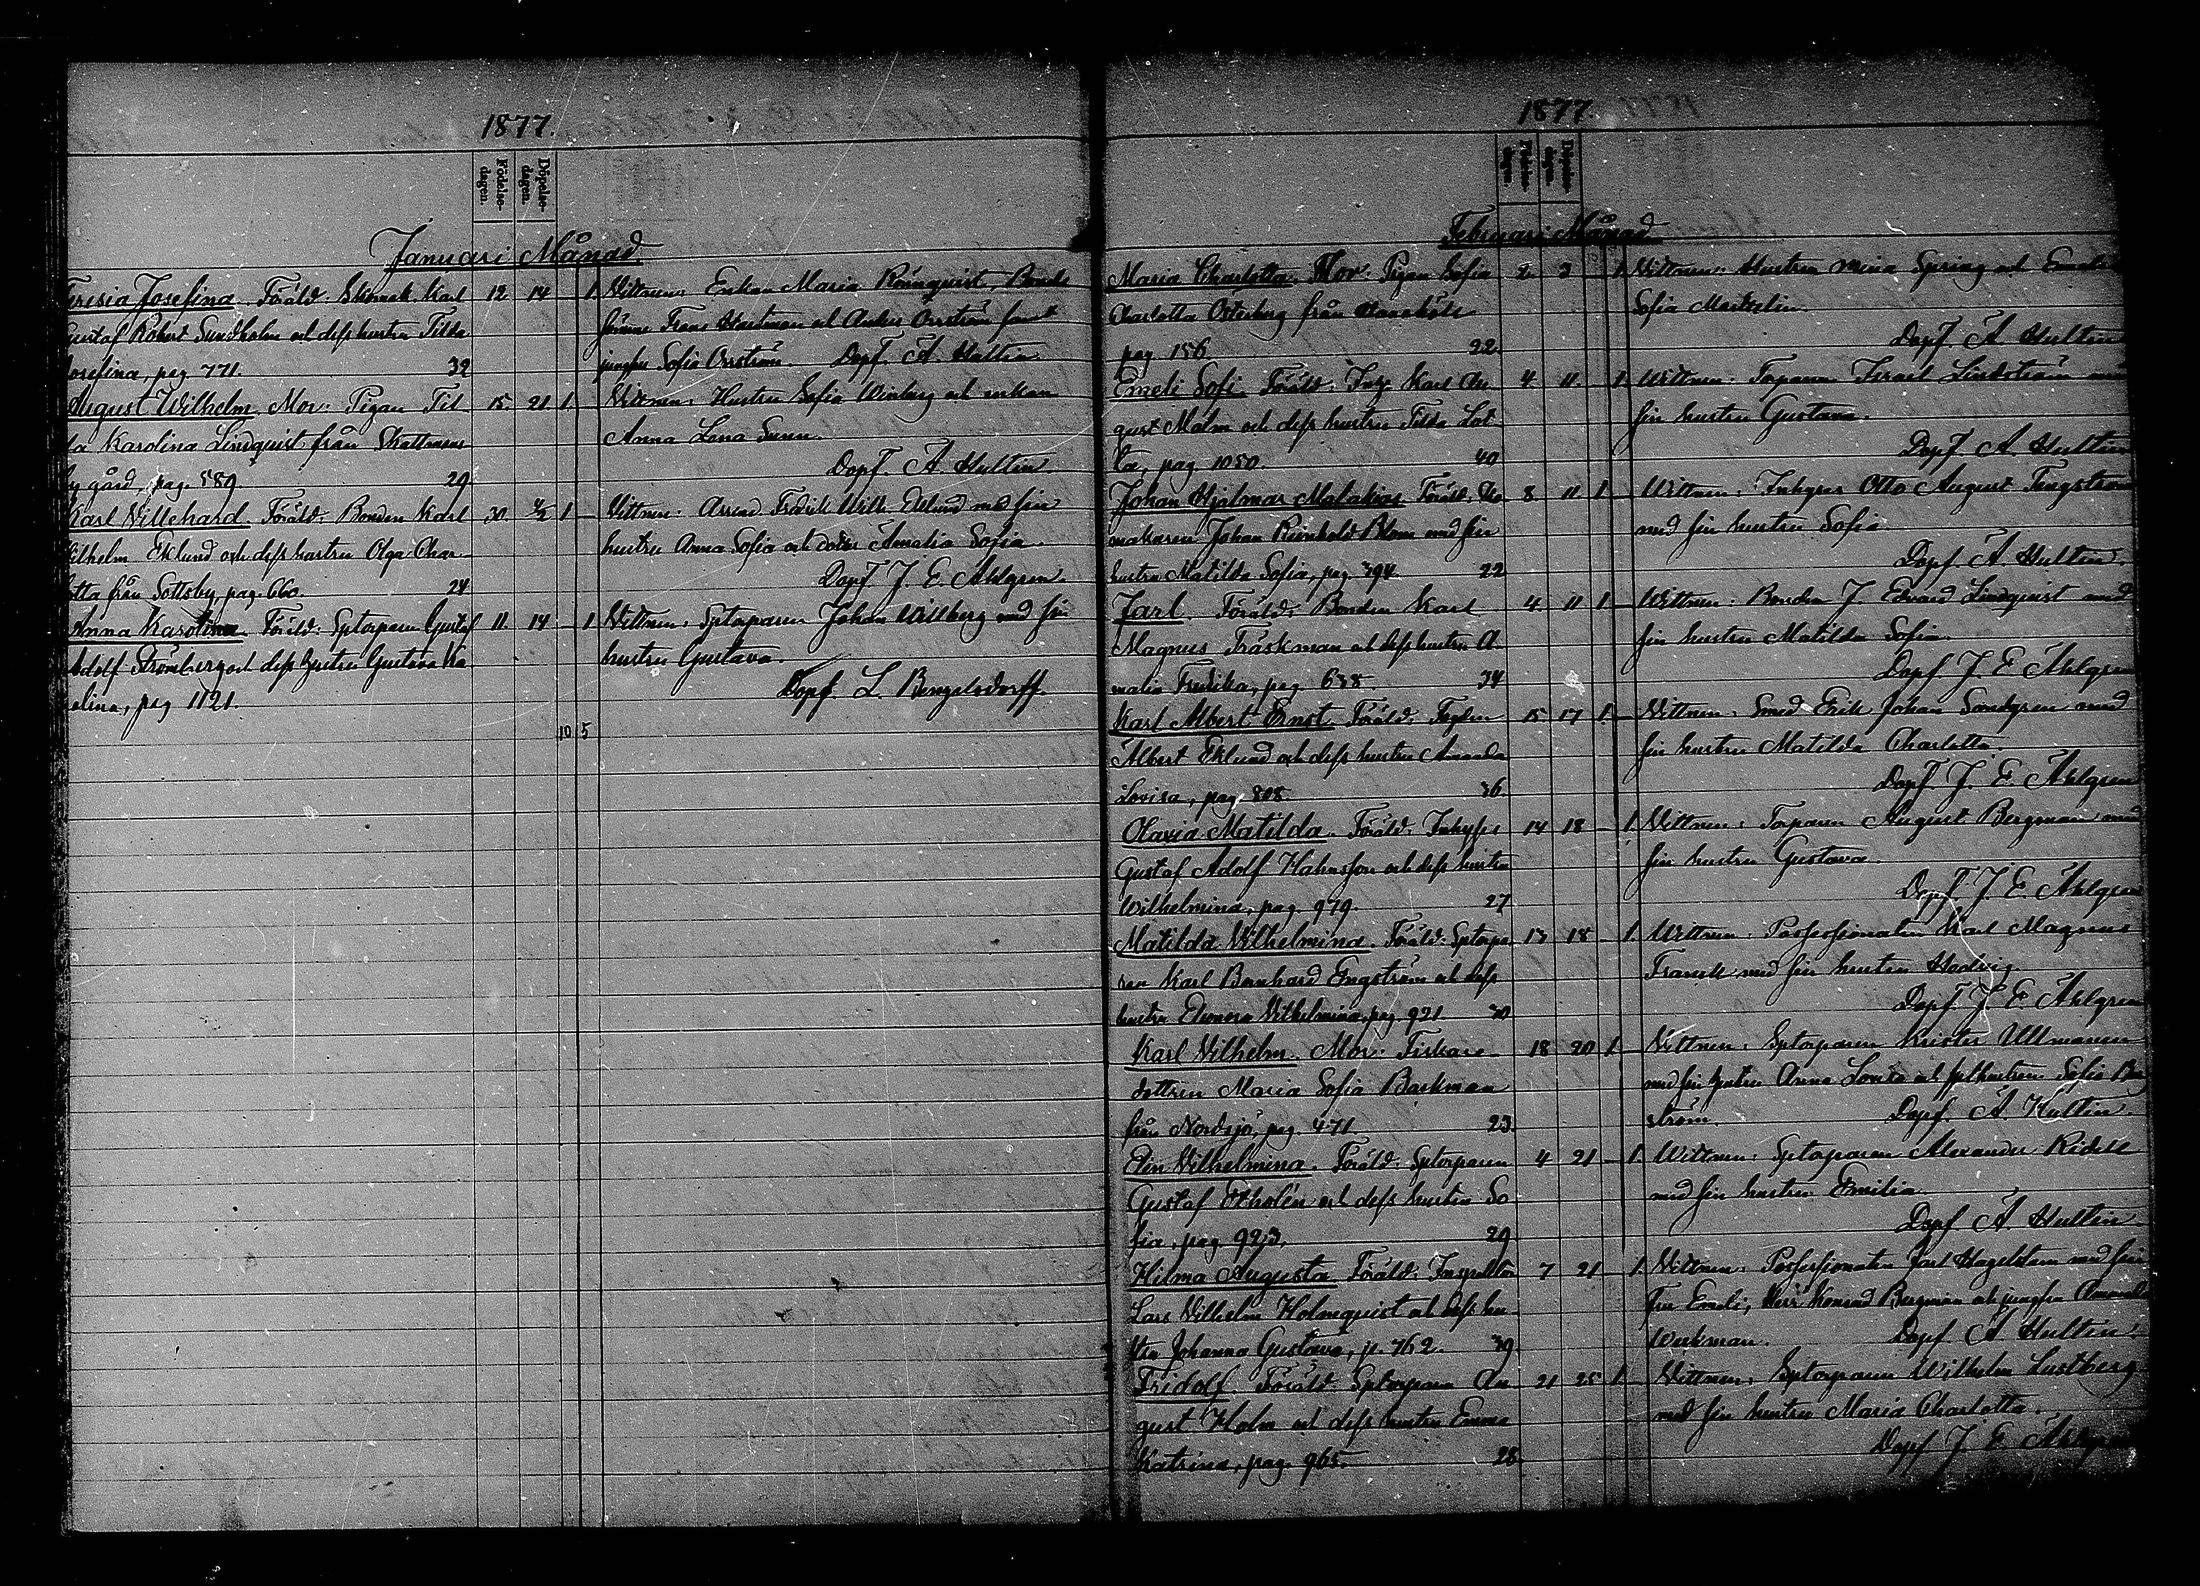 1877.
Födelse-
dagen.
Döpelse-
dagen.
Januari Månad.
Teresia Josefina. Föräld: Skomak. Karl 12 14 1
Gustaf Robert Sundholm och dess hustru Tilda
Josefina, pag. 771. 32
August Wilhelm. Mor: Pigan Til 15. 21 1
da Karolina Lindquist från
by gård, pag. 589. 29
Karl Villehard. Föräld: Bonden Karl 30. 4/2 1
Vilhelm Eklund och dess hustru Olga Char-
lotta från Sottsby, pag. 660. 24
Anna Karolina. Föräld: Sptorparen Gustaf 11. 14 1
Adolf Strömberg och dess hustru Gustava Ka
rolina, pag 1121.
10 5
Vittnen: Enkan Maria Rönnquist, Bonde
Frans och Anders Orrström samt
jungfru Sofia Orrström. Döpf. A Hultin
Vittnen: Hustru Sofia Winberg och enkan
Anna Lena Sunn.
Döpf. A Hultin
Vittnen: Arrend. Fredrik Wilh. Edlund med sin
hustru Anna Sofia och dotter Amalia Sofia.
Döpf J. E. Ahlgren.
Vittnen: Sptorparen Johan Willberg med sin
hustru Gustava.
Döpf. L. Bengelsdorff.
1877.
Februari Månad
Maria Charlotta. Mor: Pigan Sofia 2 3 1
Charlotta Österberg från
pag 156 22.
Emeli Sofi. Föräld: Inh. Karl Au 4 11 1
gust Malm och dess hustru Tilda Lot
ta, pag 1050. 40
Johan Hjalmar Malakias. Föräld: Sko 8 11 1
makaren Johan Reinhold Blom med sin
hustru Matilda Sofia, pag. 394. 22
Jarl. Föräld: Bonden Karl 4 11 1
Magnus Träskman och dess hustru A-
malia Fredrika, pag. 638 34
Karl Albert Ernst. Föräld: 15 17 1
Albert Eklund och dess hustru Amanda
Lovisa, pag. 808. 36.
Olavia Matilda. Föräld: Inhyses 14 18 1
Gustaf Adolf Hahnsson och dess hustru
Wilhelmina, pag. 979. 27
Matilda Vilhelmina. Föräld: Sptorpa 13 18 1
ren Karl Bernhard Engström och dess
hustru Eleonora Vilhelmina, pag. 921. 30
Karl Vilhelm. Mor: Fiskare- 18 20 1
dottren Maria Sofia Backman
från Nordsjö, pag. 471 23.
Elin Vilhelmina. Föräld: Sptorparen 4 21 1
Gustaf Ekholén och dess hustru So
fia, pag. 923. 29
Hilma Augusta. Föräld: Inspektor 7 21 1
Lars Vilhelm Holmquist och dess hu-
stru Johanna Gustava, p. 762. 39
Fridolf. Föräld: Sptorparen Au 21 25 1
gust Holm och dess hustru Emma
Katrina, pag. 965. 28
Vittnen: Hustru Mina Spring och
Sofia
Döpf. A Hultin
Vittnen: Torparen Israel Lindström med
sin hustru Gustava.
Döpf. A Hultin
Vittnen: Inhyses Otto August Tengström
med sin hustru Sofia
Döpf. A. Hultin.
Vittnen: Bonden J. Edvard Lindquist med
sin hustru Matilda Sofia.
Döpf J. E. Ahlgren
Vittnen: Smed Erik Johan Sandgren med
sin hustru Matilda Charlotta.
Döpf. J. E. Ahlgren
Vittnen: Torparen August Bergman med
sin hustru Gustava.
Döpf. J. E. Ahlgren
Vittnen: Possessionaten Karl Magnus
med sin hustru Hedvig.
Döpf. J. E. Ahlgren
Vittnen: Sptorparen Krister Ullmanen
med sin hustru Anna Lovisa och Sofia
ström. Döpf. A Hultin.
Vittnen: Sptorparen Alexander Ridell
med sin hustru Emilia.
Döpf A. Hultin
Vittnen: Possessionaten Jarl Hagelstam med sin
fru Emeli, Herr Konrad Bergman och jungfru
Wickman. Döpf A Hultin.
Vittnen: Sptorparen Wilhelm Lustberg
med sin hustru Maria Charlotta.
Döpf J. E. Ahlgren